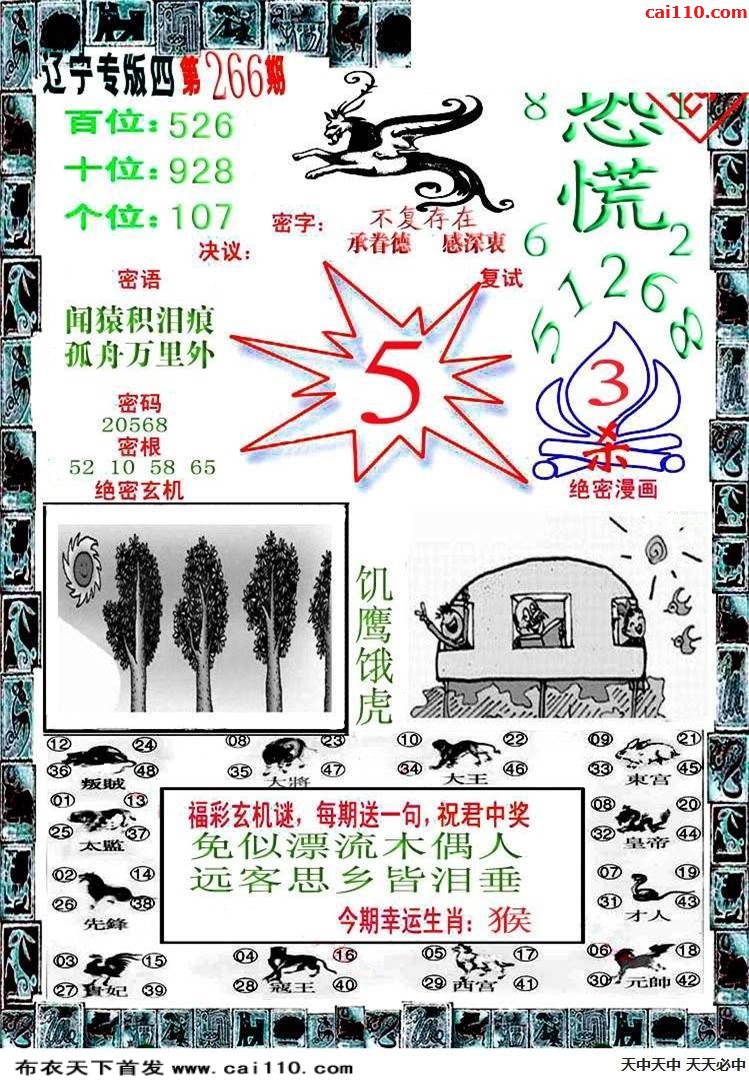 cai110.com
辽宁专版四第266期
百位:526
十位:928
个位:107
8 恐慌
6 2
5 1 2 6 8
密字: 不复存在
决议: 承眷德 感深衷
密语
复试
闻猿积泪痕
孤舟万里外
5
3
杀
密码
20568
密根
52 10 58 65
绝密玄机
绝密漫画
饥鹰饿虎
12 24 36 48 叛賊
08 23 35 47 大將
10 22 34 46 大王
09 21 33 45 東宫
01 13 25 37 太監
08 20 32 44 皇帝
福彩玄机谜,每期送一句,祝君中奖
免似漂流木偶人
远客思乡皆泪垂
今期幸运生肖: 猴
02 14 26 38 先鋒
07 19 31 43 才人
03 15 27 39 貴妃
04 16 28 40 寇王
05 17 29 41 西宫
06 18 30 42 元帥
布衣天下首发 www.cai110.com
天中天中 天天必中